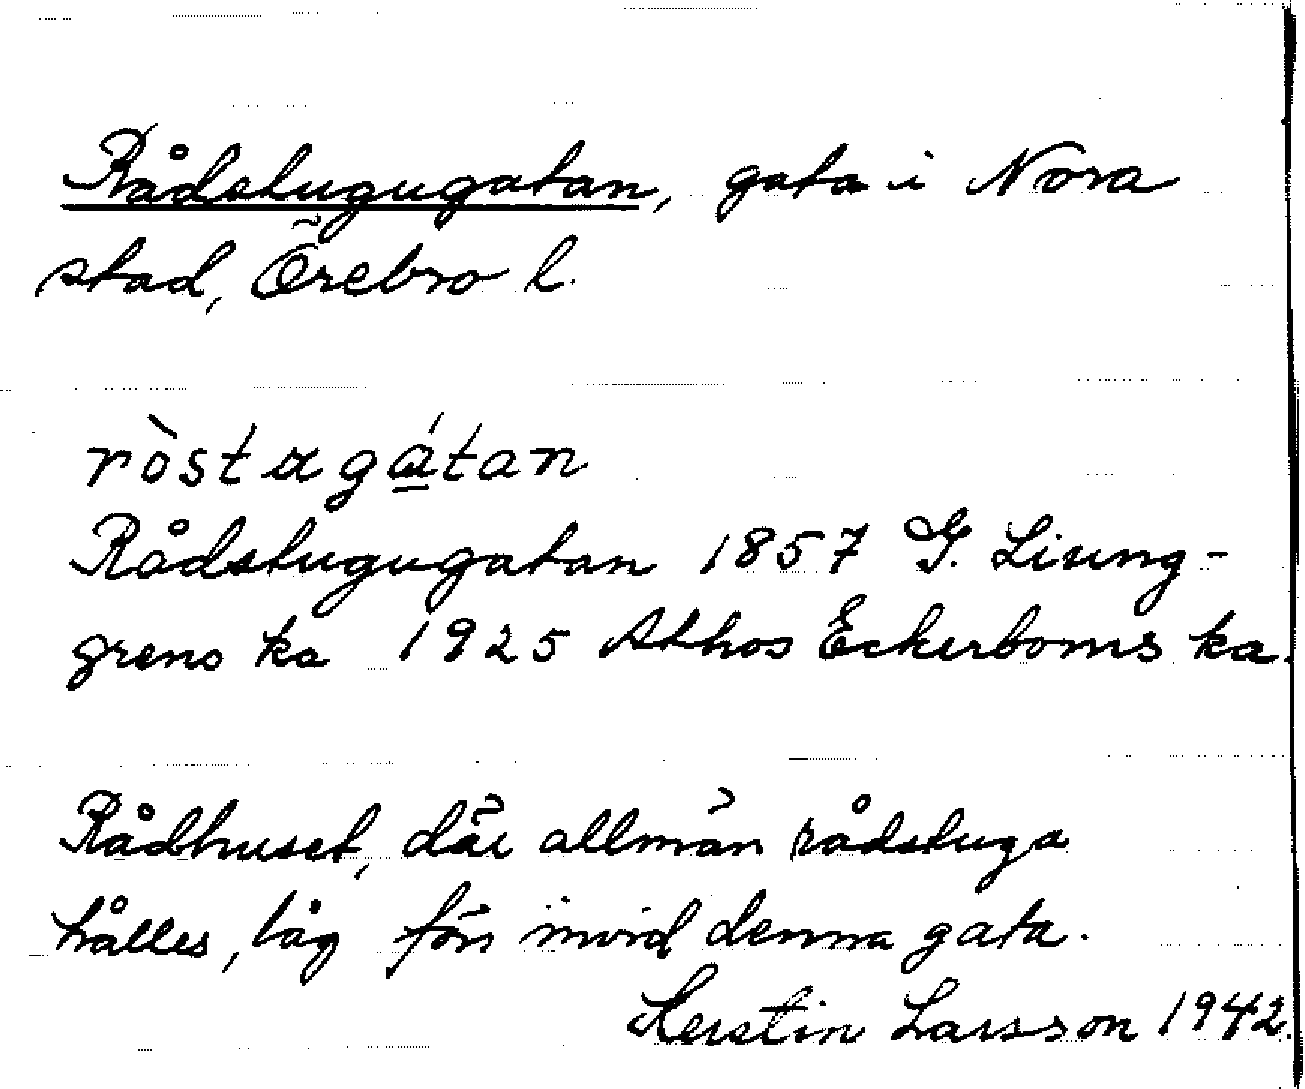 Rådstugugatan, gata i Nora
stad, Örebro l.
ròstagátan
Rådstugugatan 1857 G. Liung-
grens ka 1925 Athos Eckerboms ka.
Rådhuset, där allmän rådstuga
hålles, låg förr invid denna gata.
Kerstin Larsson 1942.